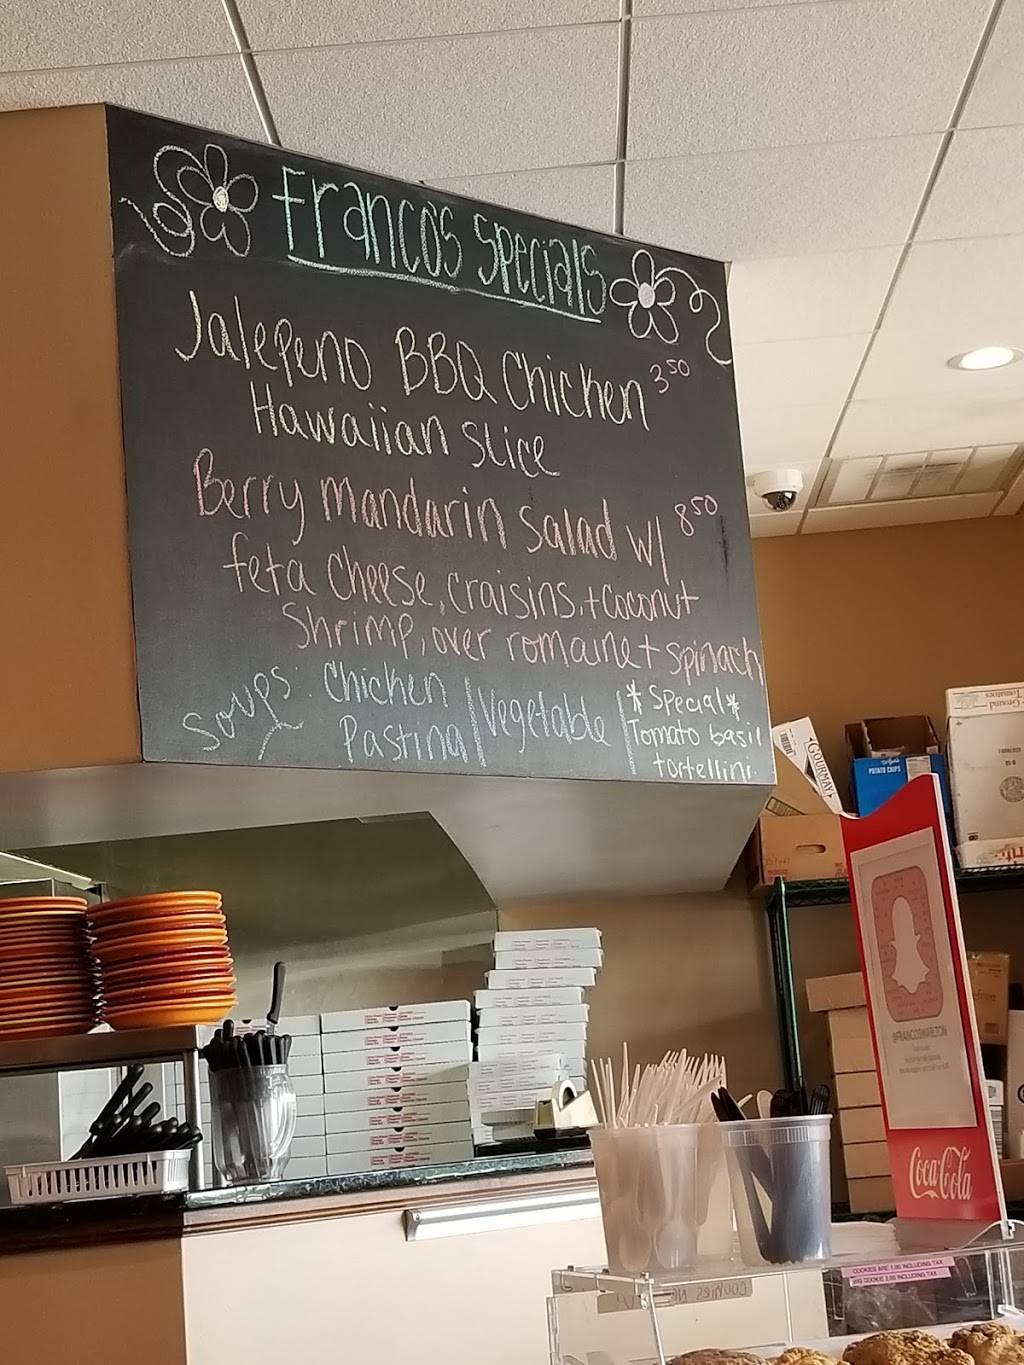 Franco's Specials
Jalepeno BBQ Chicken 3.50
Hawaiian Slice
Berry Mandarin Salad w/ 8.50
feta Cheese, Craisins, + Coconut
Shrimp, over romaine + spinach
Soups: Chicken Pastina | Vegetable | *Special* Tomato basil tortellini
GOURMAY
POTATO CHIPS
Ground
Tomatoes
@FRANCOSMARLTON
Coca-Cola
COOKIES ARE 1.00 INCLUDING TAX
BIG COOKIE 2.00 INCLUDING TAX